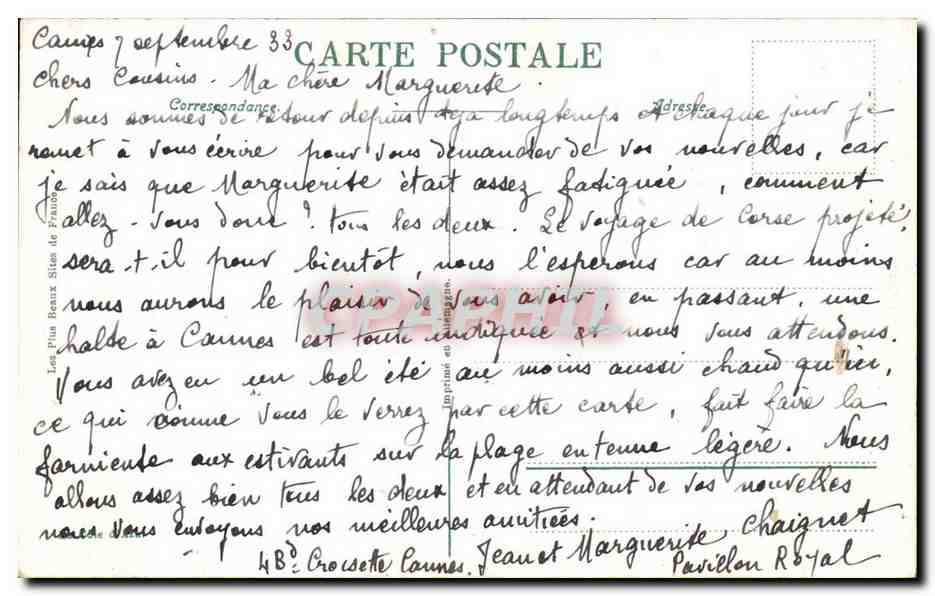 Cannes 7 septembre 33
CARTE POSTALE
Chers Cousins. Ma chère Marguerite.
Correspondance
Adresse
Nous sommes de retour depuis déja longtemps et chaque jour je
remet à vous écrire pour vous demander de vos nouvelles, car
je sais que Marguerite était assez fatiguée, comment
allez-vous donc? tous les deux. Le voyage de Corse projeté,
sera-t-il pour bientôt, nous l'esperons car au moins
nous aurons le plaisir de vous avoir, en passant, une
halte à Cannes est toute indiquée et nous vous attendons.
Vous avez eu un bel été au moins aussi chaud qu'ici,
ce qui comme vous le verrez par cette carte, fait faire la
farniente aux estivants sur la plage en tenue légère. Nous
allons assez bien tous les deux et en attendant de vos nouvelles
nous vous envoyons nos meilleures amitiés.
Jean et Marguerite Chaignet
4 Bd. Croisette Cannes. Pavillon Royal
Les Plus Beaux Sites de France.
Imprimé en Allemagne.
CPAPHIL